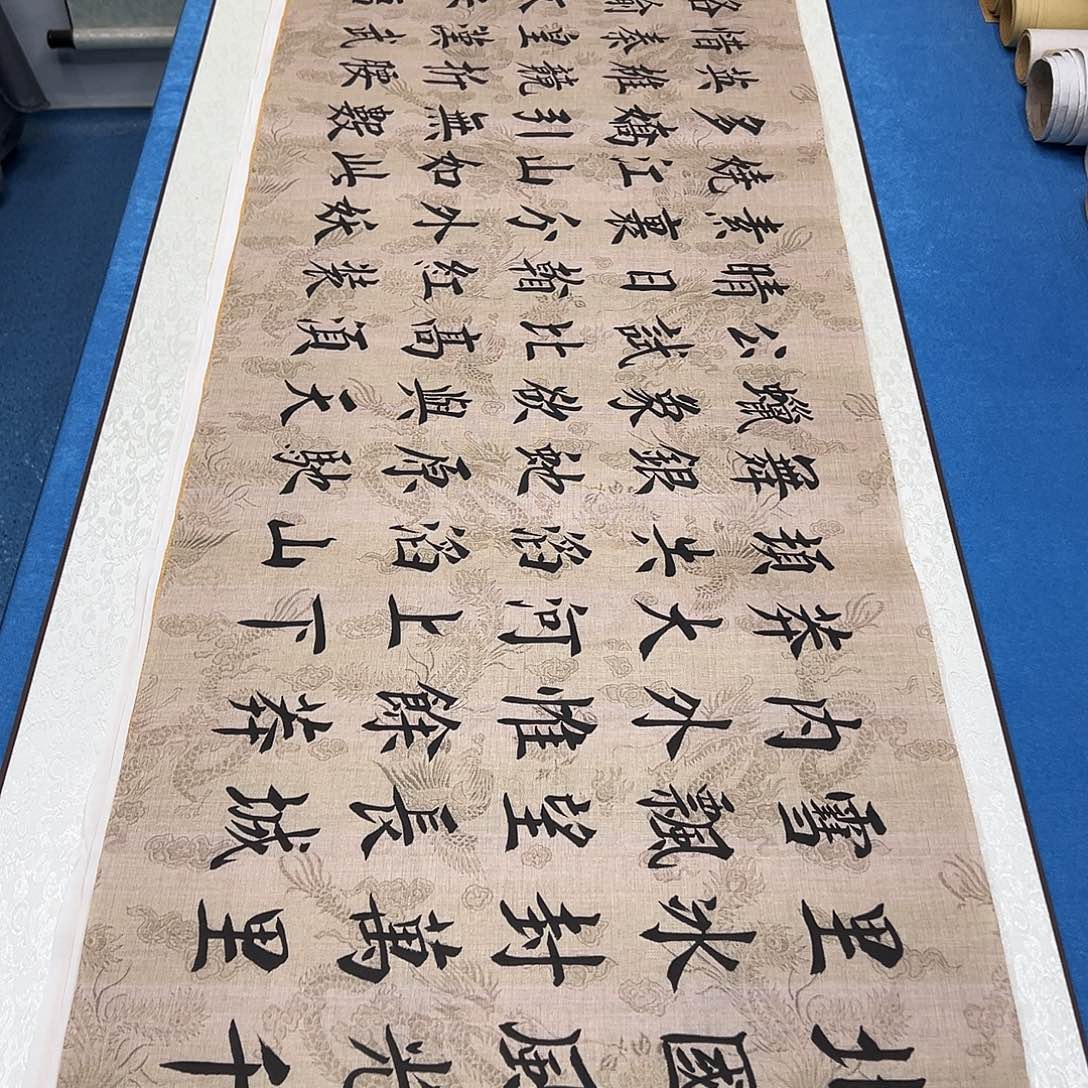 北國風光千
里冰封萬里
雪飄望長城
內外惟餘莽
莽大河上下
頓失滔滔山
舞銀蛇原馳
蠟象欲與天
公試比高須
晴日看紅裝
素裹分外妖
嬈江山如此
多嬌引無數
英雄競折腰
惜秦皇漢武